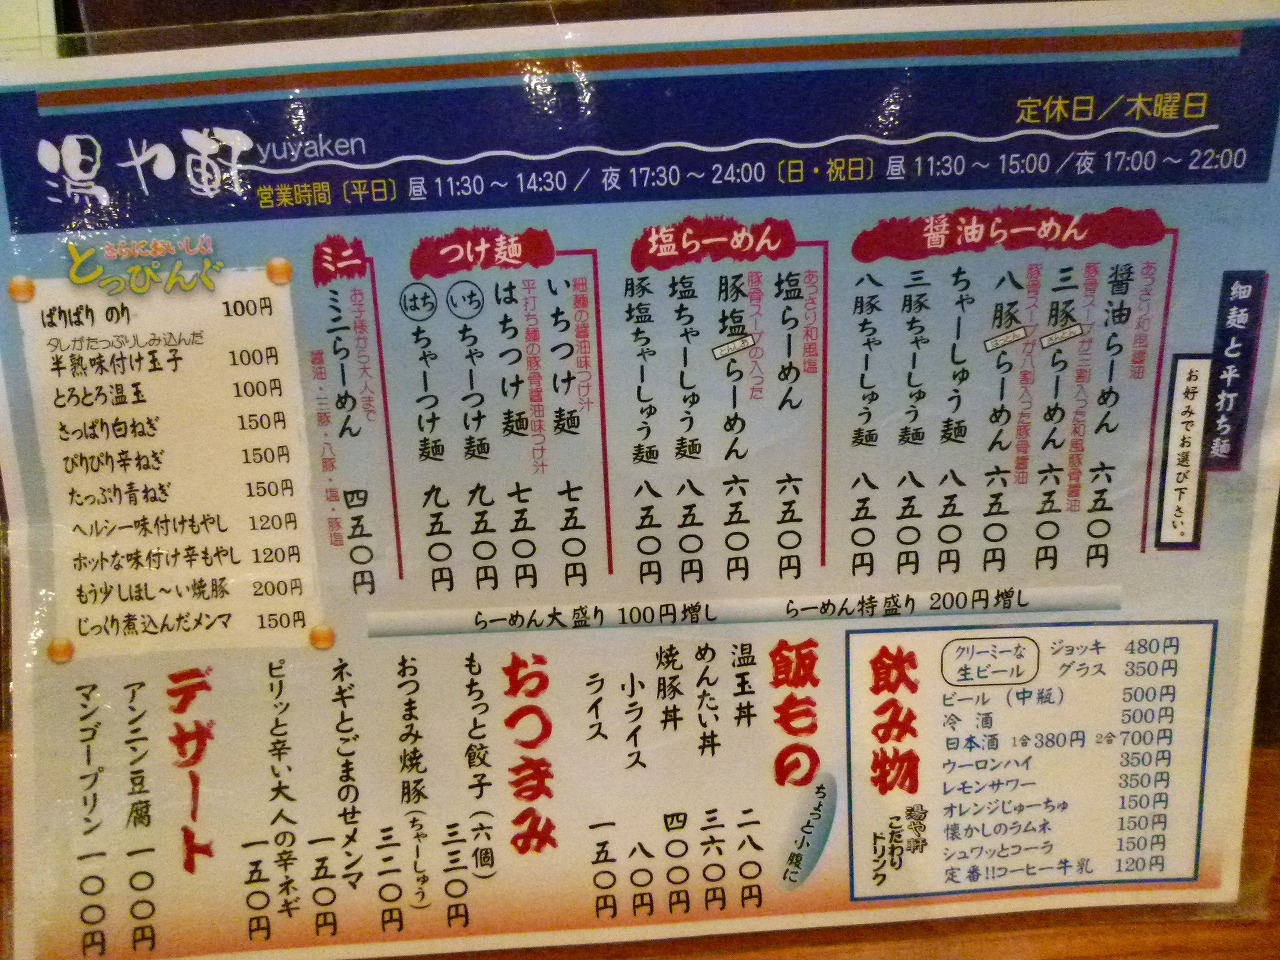 湯や軒 yuyaken
定休日／木曜日
営業時間〔平日〕昼 11:30～14:30／ 夜 17:30～24:00〔日・祝日〕昼 11:30～15:00／夜 17:00～22:00
細麺と平打ち麺
お好みでお選び下さい。
醤油らーめん
あっさり和風醤油
醤油らーめん 六五〇円
豚骨スープが三割入った和風豚骨醤油
三豚らーめん 六五〇円
さんとん
豚骨スープが八割入った豚骨醤油
八豚らーめん 六五〇円
はっとん
ちゃーしゅう麺 八五〇円
三豚ちゃーしゅう麺 八五〇円
八豚ちゃーしゅう麺 八五〇円
塩らーめん
あっさり和風塩
塩らーめん 六五〇円
豚骨スープの入った
豚塩らーめん 六五〇円
とんしお
塩ちゃーしゅう麺 八五〇円
豚塩ちゃーしゅう麺 八五〇円
つけ麺
細麺の醤油味つけ汁
いちつけ麺 七五〇円
平打ち麺の豚骨醤油味つけ汁
はちつけ麺 七五〇円
いち ちゃーつけ麺 九五〇円
はち ちゃーつけ麺 九五〇円
ミニ
お子様から大人まで
ミニらーめん 四五〇円
醤油・三豚・八豚・塩・豚塩
さらにおいしい!
とっぴんぐ
ぱりぱり のり 100円
ダシがたっぷりしみ込んだ
半熟味付け玉子 100円
とろとろ温玉 100円
さっぱり白ねぎ 150円
ぴりぴり辛ねぎ 150円
たっぷり青ねぎ 150円
ヘルシー味付けもやし 120円
ホットな味付け辛もやし 120円
もう少しほし～い焼豚 200円
じっくり煮込んだメンマ 150円
らーめん大盛り 100円増し
らーめん特盛り 200円増し
飲み物
湯や軒
こだわり
ドリンク
クリーミーな
生ビール
ジョッキ 480円
グラス 350円
ビール（中瓶） 500円
冷 酒 500円
日本酒 1合380円 2合700円
ウーロンハイ 350円
レモンサワー 350円
オレンジじゅーちゅ 150円
懐かしのラムネ 150円
シュワッとコーラ 150円
定番!!コーヒー牛乳 120円
飯もの
ちょっと小腹に
温玉丼 二八〇円
めんたい丼 三六〇円
焼豚丼 四〇〇円
小ライス 一〇〇円
ライス 一五〇円
おつまみ
もちっと餃子（六個） 三三〇円
おつまみ焼豚（ちゃーしゅう） 三二〇円
ネギとごまのせメンマ 一五〇円
ピリッと辛い大人の辛ネギ 一五〇円
デザート
アンニン豆腐 一〇〇円
マンゴープリン 一〇〇円